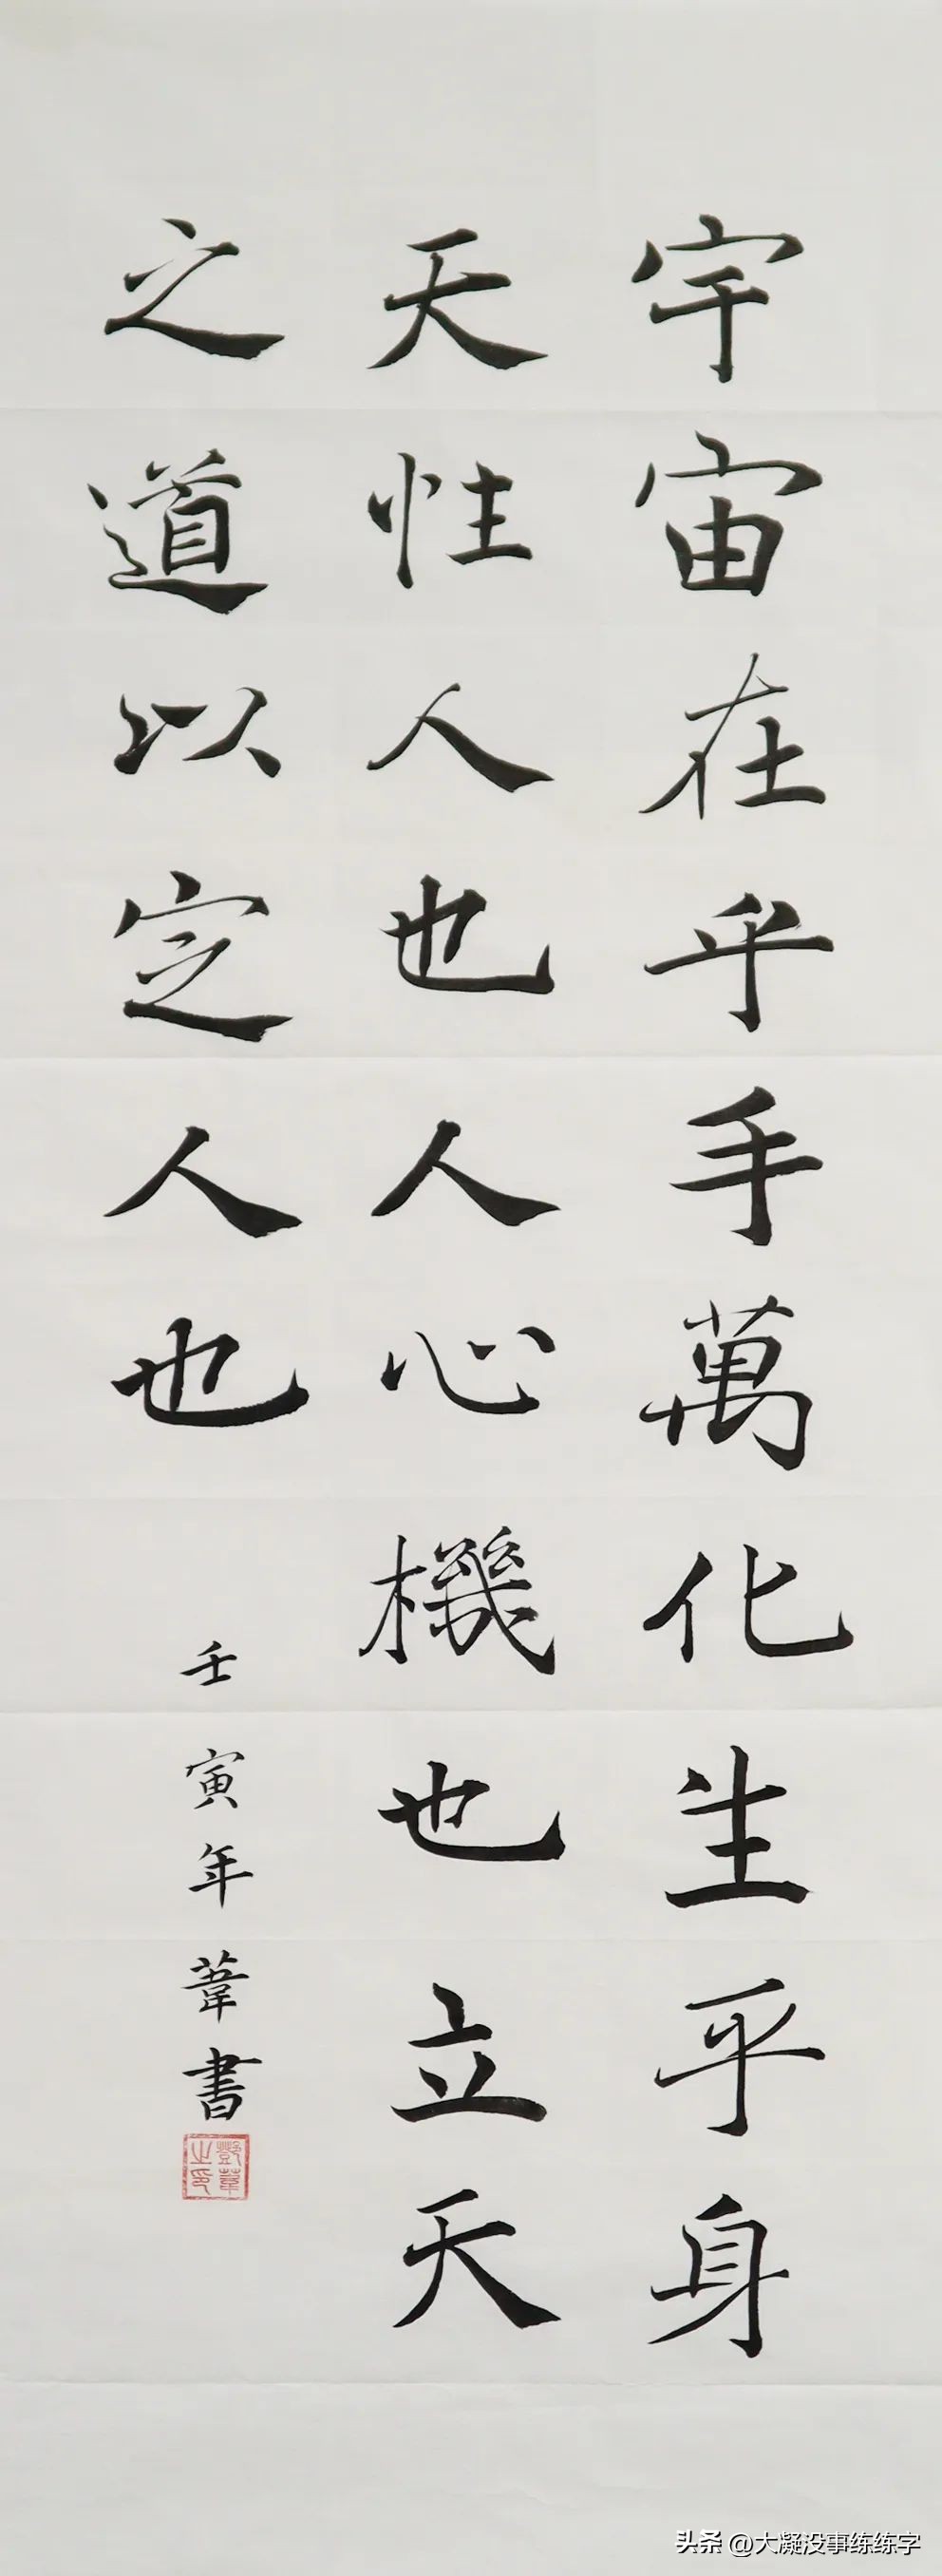 宇宙在乎手萬化生乎身
天性人也人心機也立天
之道以定人也
壬寅年葦書
头条 @大凝没事练练字